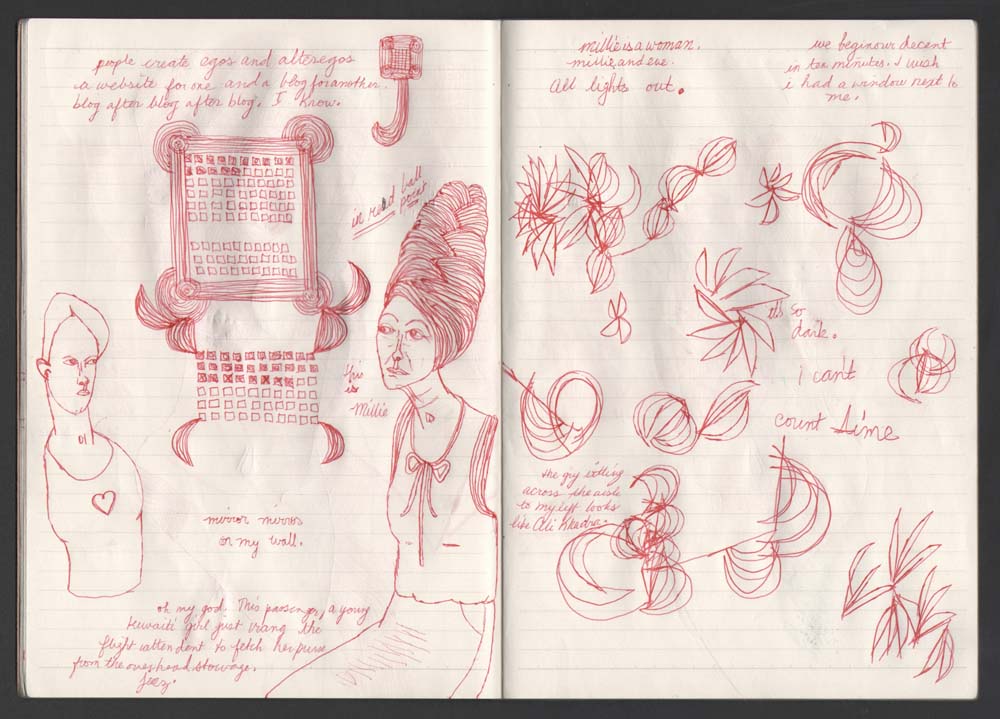 people create egos and alteregos
a website for one and a blog for another.
blog after blog after blog. I know.
in read ball
point
this
is
Millie
mirror mirror
on my wall.
oh my god. This passenger, a young
kuwaiti girl just rang the
flight attendant to fetch her purse
from the overhead stowage.
Jeez.
millie is a woman.
millie and eve.
All lights out.
we begin our decent
in ten minutes. I wish
i had a window next to
me.
it's so
dark.
i can't
count time
the guy sitting
across the aisle
to my left looks
like Ali Khadra.